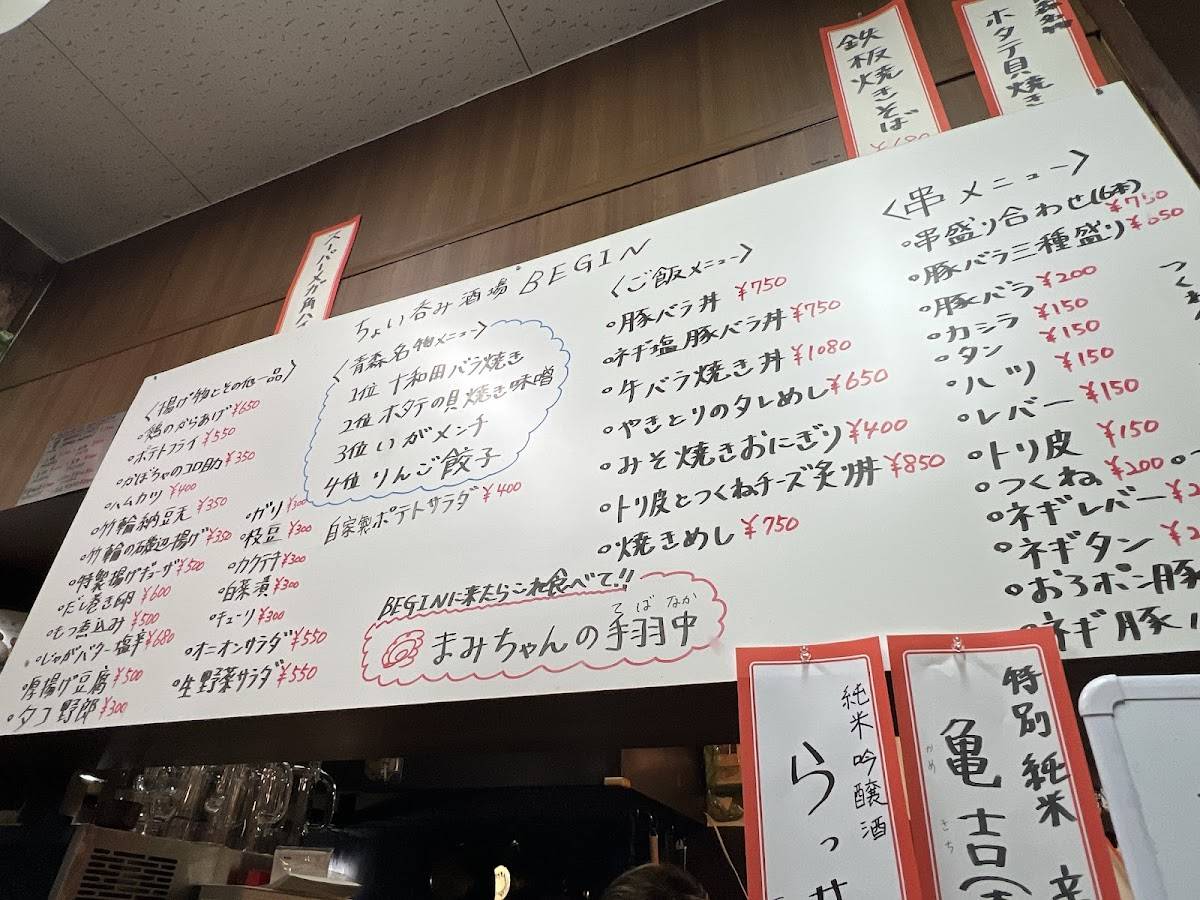 鉄板焼きそば
ホタテ貝焼き
スーパーメガ角ハ
ちょい呑み酒場 BEGIN
〈揚げ物とその他一品〉
鶏のからあげ ¥650
ポテトフライ ¥550
かぼちゃのコロ助 ¥350
ハムカツ ¥400
竹輪納豆天 ¥350
竹輪の磯辺揚げ ¥350
特製揚げギョーザ ¥500
だし巻き卵 ¥600
もつ煮込み ¥500
じゃがバター塩辛 ¥680
厚揚げ豆腐 ¥500
タコ野郎 ¥300
ガリ ¥300
枝豆 ¥300
カクテキ ¥300
白菜漬 ¥300
チューリ ¥300
オニオンサラダ ¥550
生野菜サラダ ¥550
〈青森名物メニュー〉
1位 十和田バラ焼き
2位 ホタテの貝焼き味噌
3位 いがメンチ
4位 りんご餃子
自家製ポテトサラダ ¥400
BEGINに来たらこれ食べて!!
まみちゃんの手羽中
てばなか
〈ご飯メニュー〉
豚バラ丼 ¥750
ネギ塩豚バラ丼 ¥750
牛バラ焼き丼 ¥1080
やきとりのタレめし ¥650
みそ焼きおにぎり ¥400
トリ皮とつくねチーズ炙り丼 ¥850
焼きめし ¥750
〈串メニュー〉
串盛り合わせ(6本) ¥750
豚バラ三種盛り ¥650
豚バラ ¥200
カシラ ¥150
タン ¥150
ハツ ¥150
レバー ¥150
トリ皮 ¥150
つくね ¥200
ネギレバー ¥2
ネギタン ¥2
おろポン豚
ネギ豚バ
つくね
純米吟醸酒
らっ
特別純米 辛
亀吉
かめきち